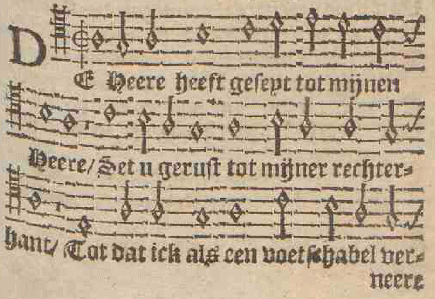 DE Heere heeft geseyt tot mijnen
Heere/ Set u gerust tot mijner rechter-
hant/ Tot dat ick als een voetschabel ver-
neere